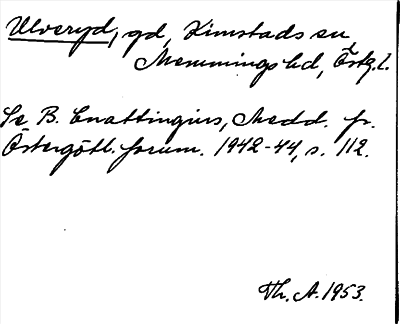 Ulveryd, gd, Kimstads sn
Memmings hd, Östg.l.
Se B. Cnattingius, Medd. fr.
Östergötl. fornm. 1942-44, s. 112.
Th. A. 1953.